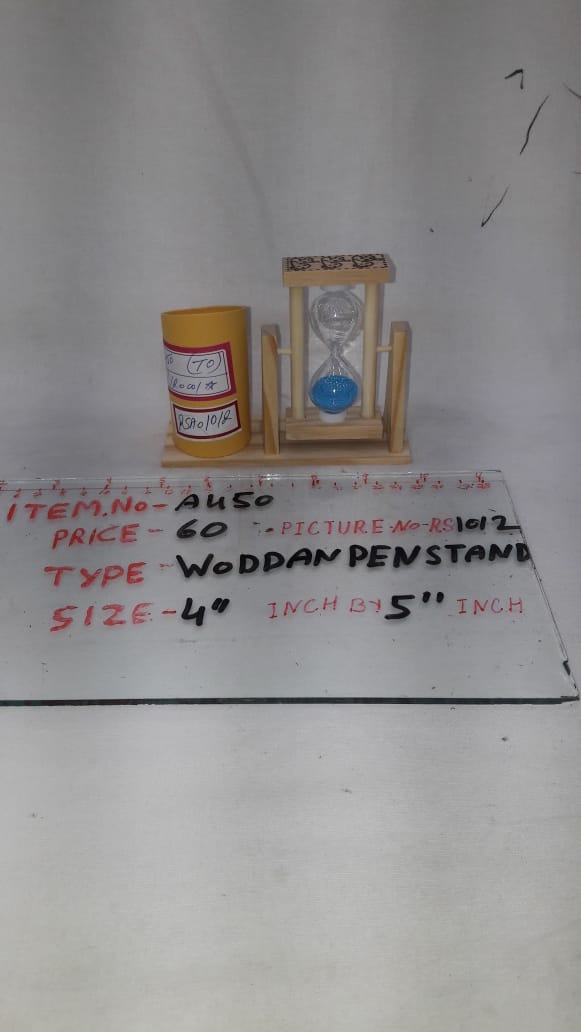 (TO)
ITEM.No-A450
PRICE-60 PICTURE-NO-RS1012
TYPE-WoDDAN PENSTAND
SIZE-4" INCH BY 5" INCH